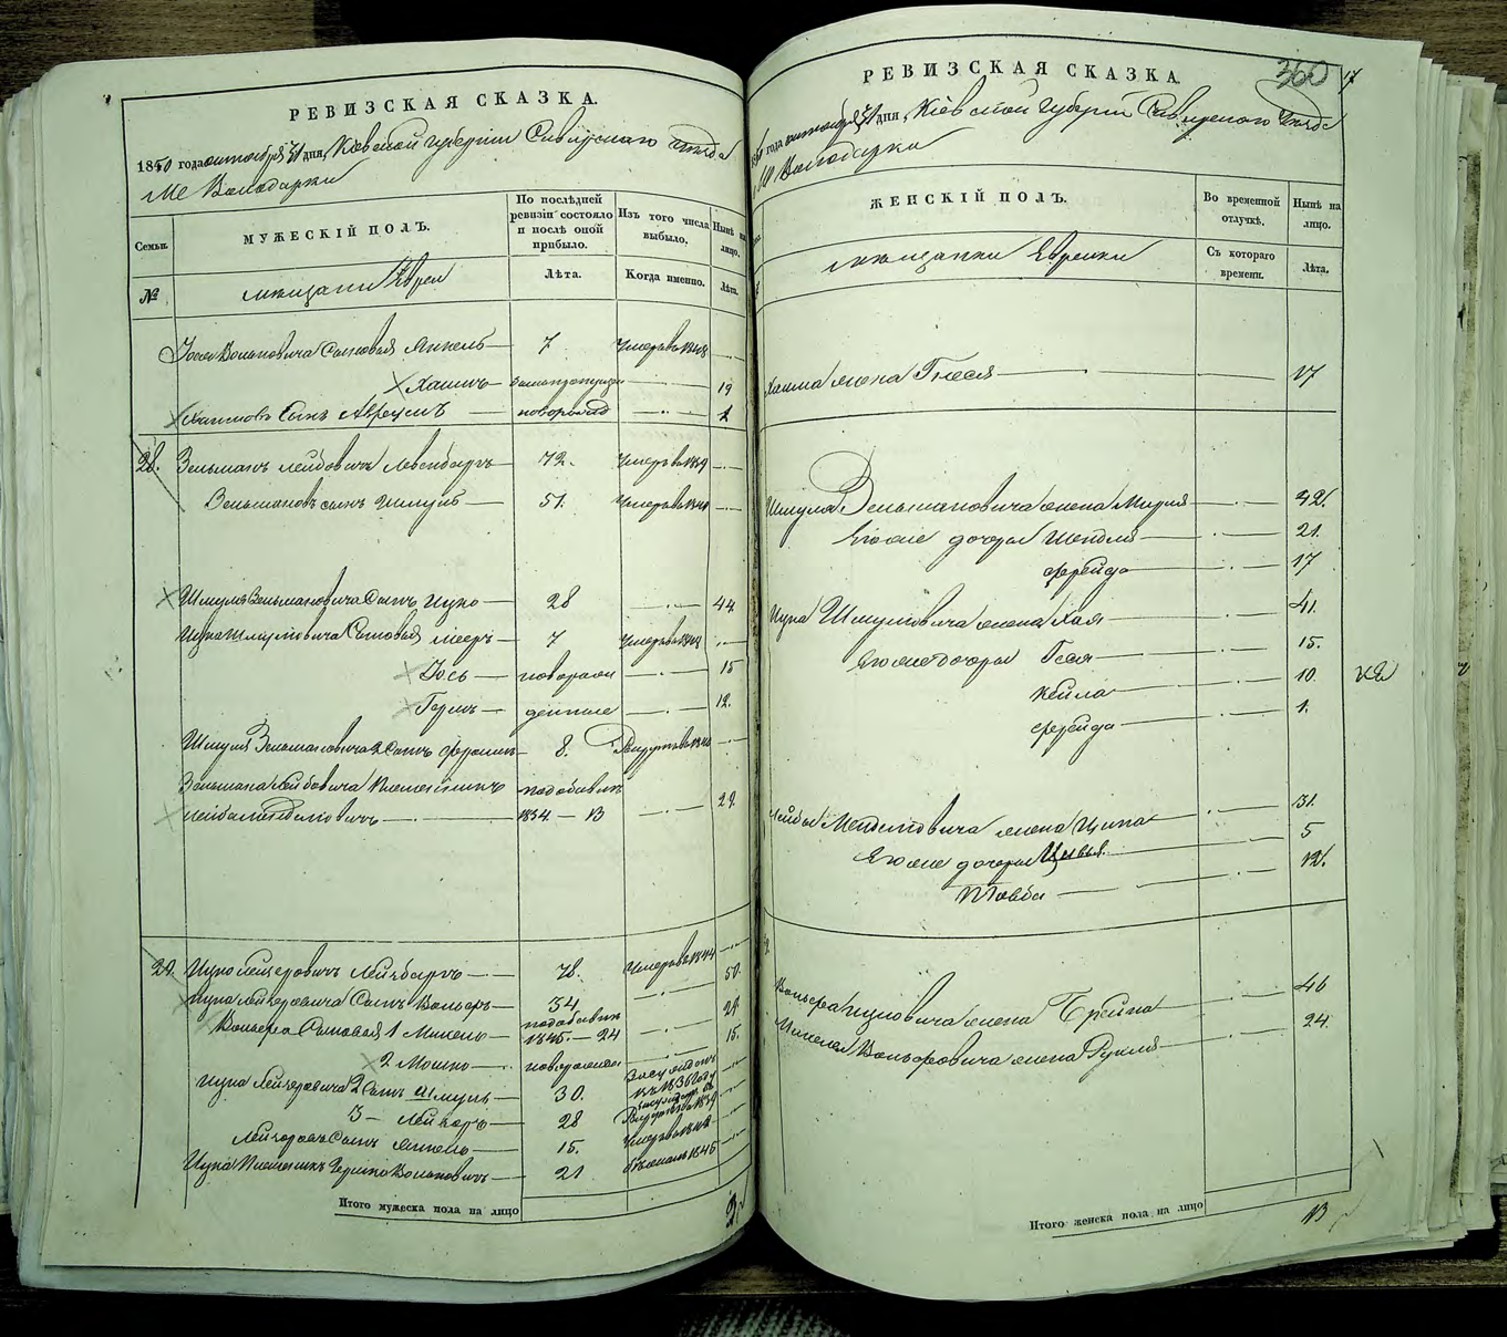 РЕВИЗСКАЯ СКАЗКА.
1850 года октября 31 дня, Кіевской Губерніи Сквирскаго уезда
Ме Володарки
Семьи.
МУЖЕСКІЙ ПОЛЪ.
По послѣдней ревизіи состояло и послѣ оной прибыло.
Изъ того числа выбыло.
Ныне на лицо.
№
мещани Евреи
Лѣта.
Когда именно.
Лѣта.
Іоселя Вольковича Сыновья Янкель 7 Умеръ в 1848
Хаимъ 19
Хаимовъ Сынъ Аврумъ новорожд 1
28. Зельманъ Лейбовичъ Левенбергъ 72. Умеръ в 1839
Зельмановъ сынъ Шмуль 51. Умеръ в 1840
Шмуля Зельмановича Сынъ Ицко 28 44
Ицка Шмулевича Сыновья Мееръ 7 Умеръ в
Іось новорожд 15
Гершъ 12.
Шмуля Зельмановича 2 Сынъ Фроимъ 8. Рекрутъ в 1840
Зельмана Лейбовича Племенникъ подобавкѣ
Лейба Менделевичъ 1834 — 13 29.
29. Ицко Лейзеровичъ 78. Умеръ в 1844
Ицка Лейзеровича Сынъ Вольферъ 34 50.
Вольфера Сыновья 1 Михель подобавкѣ 1845. — 24 29
2 Мошко новорожден 15.
Ицка Лейзеровича 2 Сынъ Шмуль 30.
3 — Лейзеръ 28 Рекрутъ в 1839
Лейзеровъ Сынъ Янкель 15. Умеръ в 1848
Ицка Племенникъ Гершко Вольковичъ 21 1846
Итого мужеска пола на лицо
РЕВИЗСКАЯ СКАЗКА.
360
17
года октября 31 дня, Кіевской Губерніи Сквирскаго уезда
М Володарки
ЖЕНСКІЙ ПОЛЪ.
Во временной отлучкѣ.
Нынѣ на лицо.
мещанки Еврейки
Съ котораго времени.
Лѣта.
Хаима жена Гнеся 17
Шмуля Зельмановича жена Мирля 42.
Его же дочери Шендля 21.
Фрейда 17
Ицка Шмулевича жена Хая 41.
Его же дочери Геся 15.
Кейла 10.
Фрейда 1.
Лейбы Менделевича жена Ципа 31.
Его же дочери Цывья 5
Товба 12.
Вольфера Ицковича жена Брейна 46
Михеля Вольферовича жена Рухля 24.
Итого женска пола на лицо 13